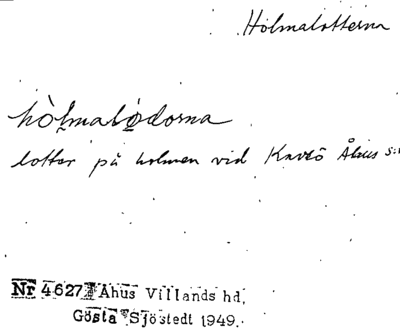 Holmalotterna
hòlmalødorna
lotter på holmen vid Kavrö Åhus s:n
Nr 4627 Åhus Villands hd,
Gösta Sjöstedt 1949.